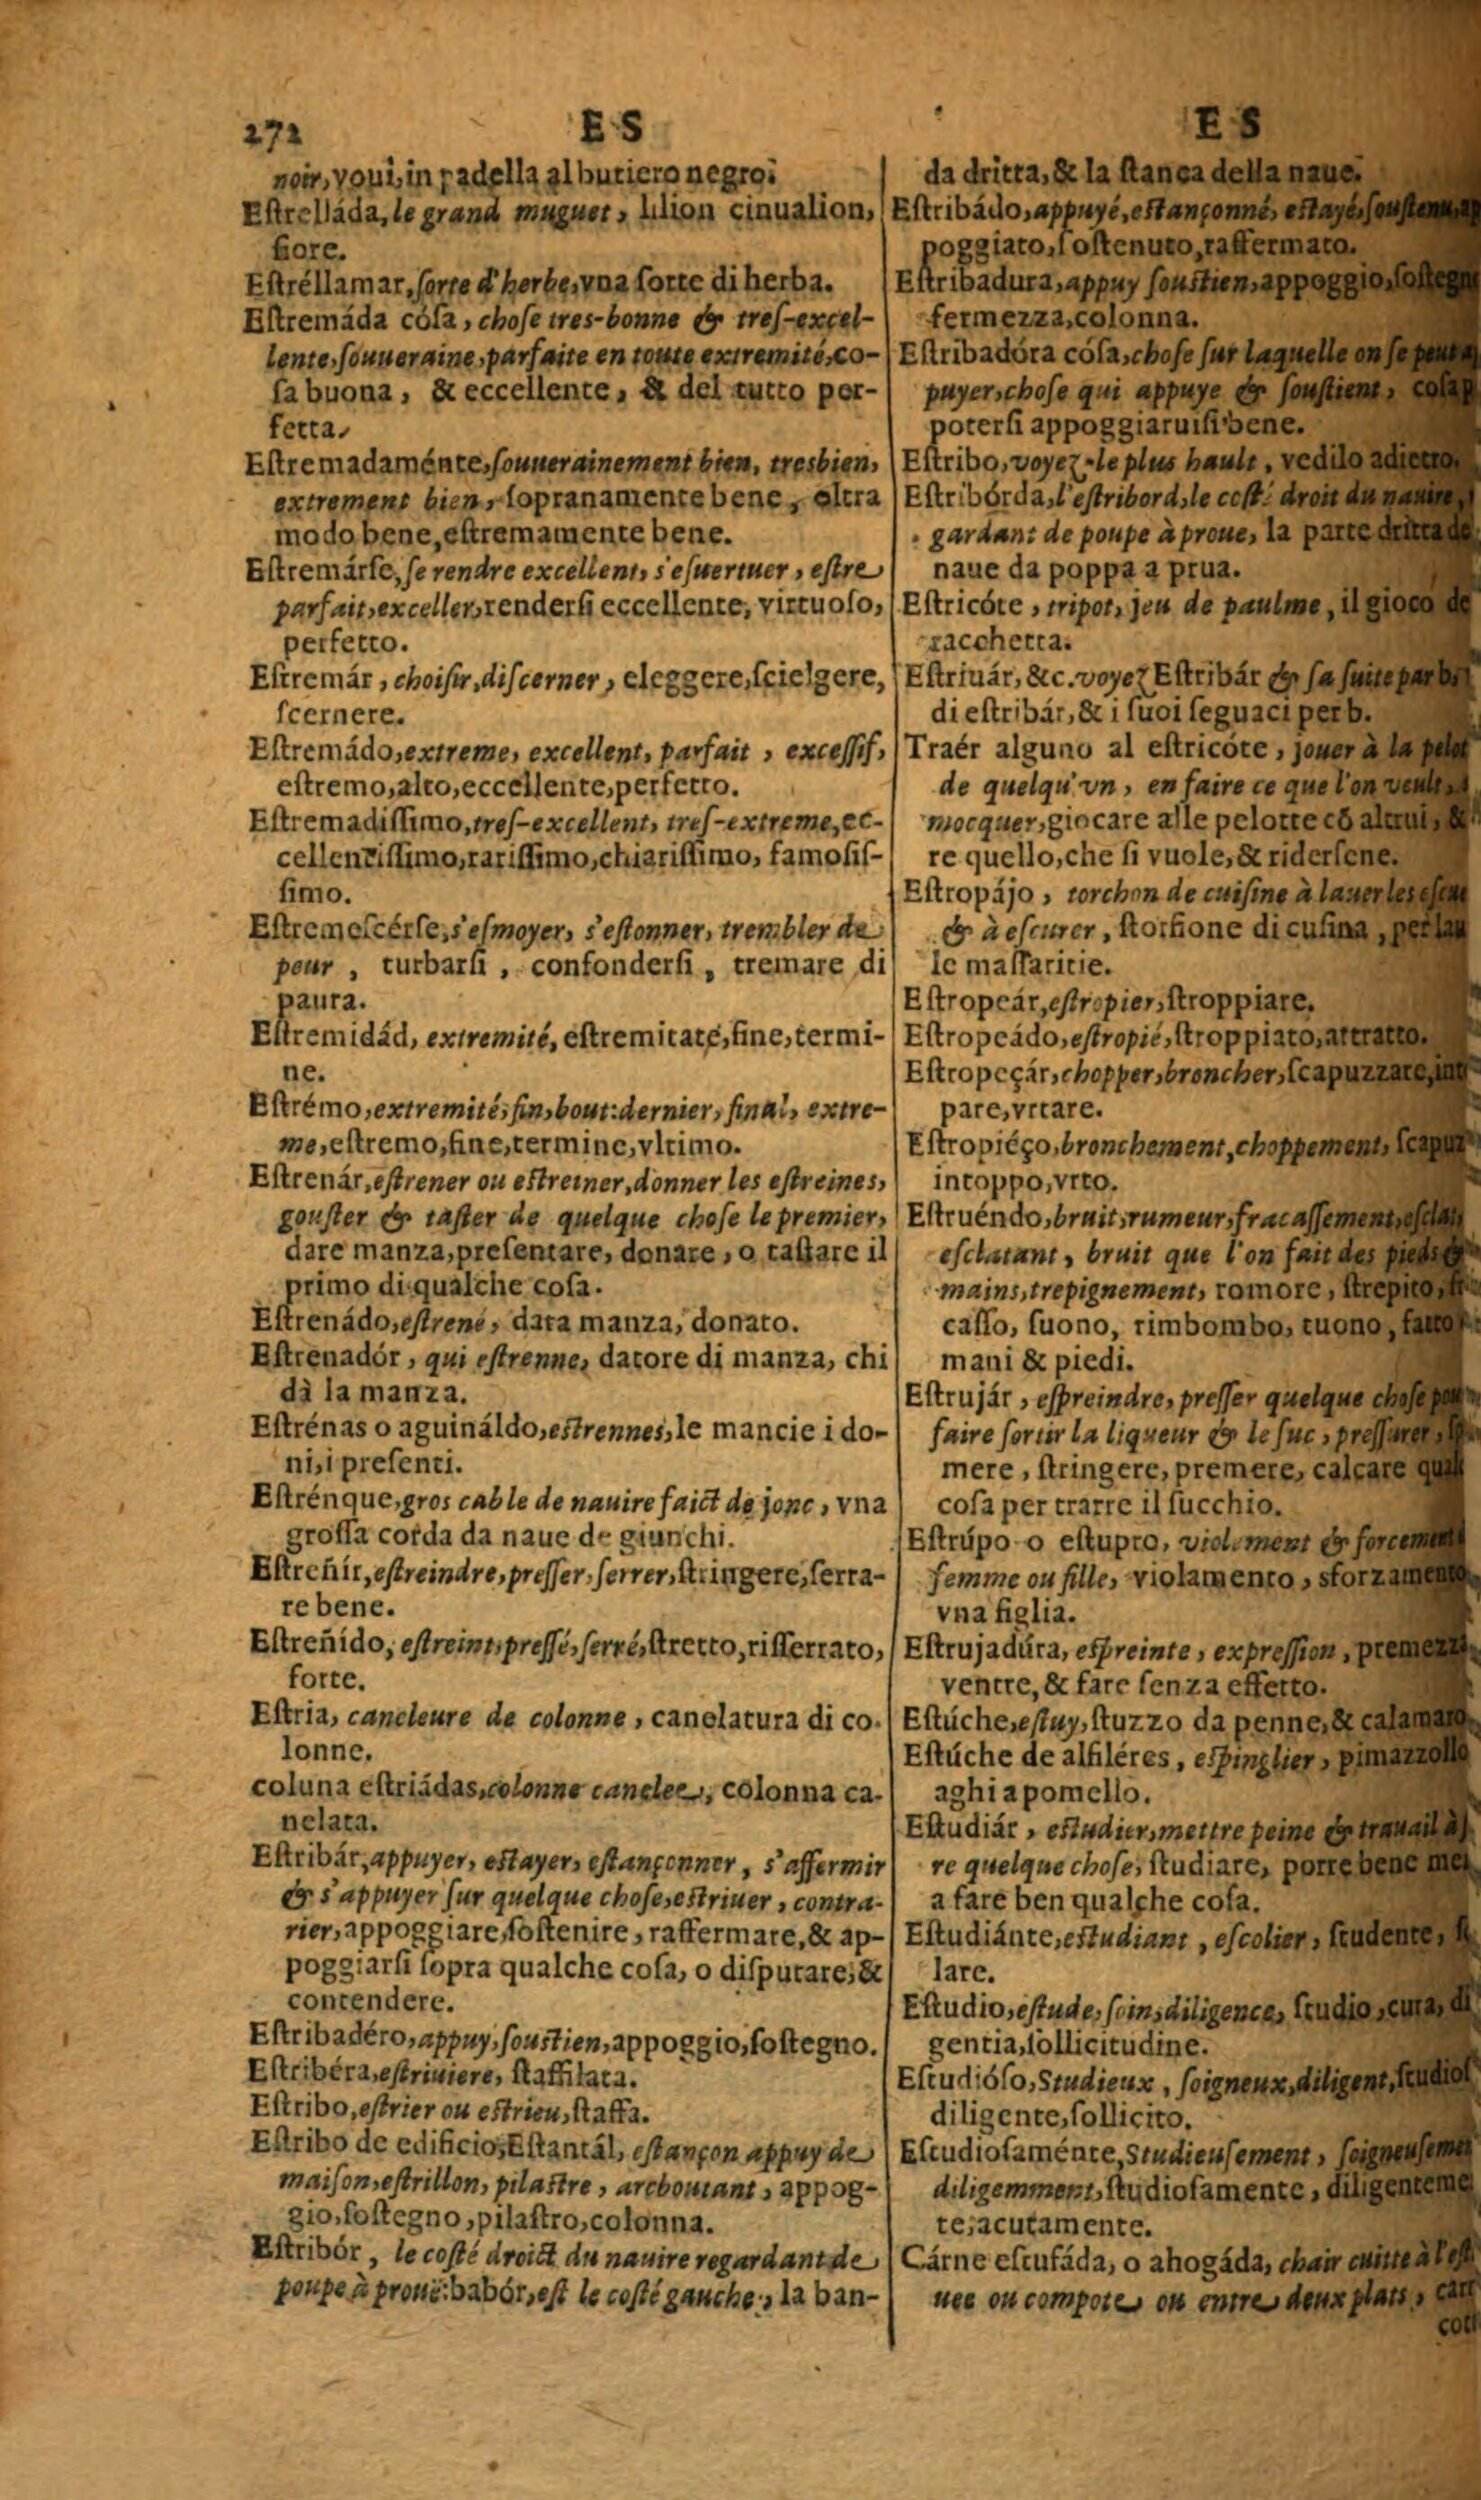 272 ES
noir, voui, in padella al butiero negro.
Eſtrelláda, le grand muguet, lilion cinualion,
fiore.
Eſtréllamar, ſorte d'herbe, vna ſorte di herba.
Eſtremáda cóſa, choſe tres-bonne & treſ-excel-
lente, ſouueraine, parfaite en toute extremité, co-
ſa buona, & eccellente, & del tutto per-
fetta.
Eſtremadaménte, ſouuerainement bien, tresbien,
extrement bien, ſopranamente bene, oltra
modo bene, eſtremamente bene.
Eſtremárſe, ſe rendre excellent, s'eſuertuer, eſtre
parfait, exceller, renderſi eccellente, virtuoſo,
perfetto.
Eſtremár, choiſir, diſcerner, eleggere, ſcielgere,
ſcernere.
Eſtremádo, extreme, excellent, parfait, exceſſif,
eſtremo, alto, eccellente, perfetto.
Eſtremadiſſimo, treſ-excellent, treſ-extreme, ec-
cellentiſſimo, rariſſimo, chiariſſimo, famoſiſ-
ſimo.
Eſtremeſcérſe, s'eſmoyer, s'eſtonner, trembler de
peur, turbarſi, confonderſi, tremare di
paura.
Eſtremidád, extremité, eſtremitate, fine, termi-
ne.
Eſtrémo, extremité, fin, bout: dernier, final, extre-
me, eſtremo, fine, termine, vltimo.
Eſtrenár, eſtrener ou eſtreiner, donner les eſtreines,
gouſter & taſter de quelque choſe le premier,
dare manza, preſentare, donare, o taſtare il
primo di qualche coſa.
Eſtrenádo, eſtrené, data manza, donato.
Eſtrenadór, qui eſtrenne, datore di manza, chi
dà la manza.
Eſtrénas o aguináldo, eſtrennes, le mancie i do-
ni, i preſenti.
Eſtrénque, gros cable de nauire faict de jonc, vna
groſſa corda da naue de giunchi.
Eſtreñír, eſtreindre, preſſer, ſerrer, ſtringere, ſerra-
re bene.
Eſtreñido, eſtreint, preſſé, ſerré, ſtretto, riſſerrato,
forte.
Eſtria, cancleure de colonne, canelatura di co-
lonne.
coluna eſtriádas, colonne canclee, colonna ca-
nelata.
Eſtribár, appuyer, eſtayer, eſtançonner, s'affermir
& s'appuyer ſur quelque choſe, eſtriuer, contra-
rier, appoggiare, ſoſtenire, raffermare, & ap-
poggiarſi ſopra qualche coſa, o diſputare, &
contendere.
Eſtribadéro, appuy, ſouſtien, appoggio, ſoſtegno.
Eſtribéra, eſtriuiere, ſtaffilata.
Eſtribo, eſtrier ou eſtrieu, ſtaffa.
Eſtribo de edificio, Eſtantál, eſtançon appuy de
maiſon, eſtrillon, pilaſtre, arcboutant, appog-
gio, ſoſtegno, pilaſtro, colonna.
Eſtribór, le coſté droict du nauire regardant de
poupe à prouë: babór, eſt le coſté gauche, la ban-
ES
da dritta, & la ſtanca della naue.
Eſtribádo, appuyé, eſtançonné, eſtayé, ſouſtenu, ap
poggiato, ſoſtenuto, raffermato.
Eſtribadura, appuy ſouſtien, appoggio, ſoſtegno
fermezza, colonna.
Eſtribadóra cóſa, choſe ſur laquelle on ſe peut a
puyer, choſe qui appuye & ſouſtient, coſa p
poterſi appoggiaruiſi bene.
Eſtribo, voyez-le plus hault, vedilo adietro.
Eſtribórda, l'eſtribord, le coſté droit du nauire,
gardant de poupe à proue, la parte dritta de
naue da poppa a prua.
Eſtricóte, tripot, jeu de paulme, il gioco de
racchetta.
Eſtriuár, &c. voyez Eſtribár & ſa ſuite par b,
di eſtribár, & i ſuoi ſeguaci per b.
Traér alguno al eſtricóte, jouer à la pelot
de quelqu'vn, en faire ce que l'on veult,
mocquer, giocare alle pelotte cõ altrui, &
re quello, che ſi vuole, & riderſene.
Eſtropájo, torchon de cuiſine à lauer les eſcue
& à eſcurer, ſtorfione di cuſina, per lau
le maſſaritie.
Eſtropeár, eſtropier, ſtroppiare.
Eſtropeádo, eſtropié, ſtroppiato, attratto.
Eſtropeçár, chopper, broncher, ſcapuzzare, int
pare, vrtare.
Eſtropiéço, bronchement, choppement, ſcapuz
intoppo, vrto.
Eſtruéndo, bruit, rumeur, fracaſſement, eſclat,
eſclatant, bruit que l'on fait des pieds &
mains, trepignement, romore, ſtrepito, fr
caſſo, ſuono, rimbombo, tuono, fatto
mani & piedi.
Eſtrujár, eſpreindre, preſſer quelque choſe pou
faire ſortir la liqueur & le ſuc, preſſurer, ſp
mere, ſtringere, premere, calcare qual
coſa per trarre il ſucchio.
Eſtrúpo o eſtupro, violement & forcement
femme ou fille, violamento, sforzamento
vna figlia.
Eſtrujadúra, eſpreinte, expreſſion, premezzi
ventre, & fare ſenza effetto.
Eſtúche, eſtuy, ſtuzzo da penne, & calamaro
Eſtúche de alfiléres, eſpinglier, pimazzollo
aghi a pomello.
Eſtudiár, eſtudier, mettre peine & trauail à
re quelque choſe, ſtudiare, porre bene me
a fare ben qualche coſa.
Eſtudiánte, eſtudiant, eſcolier, ſtudente, ſ
lare.
Eſtudio, eſtude, ſoin, diligence, ſtudio, cura, di
gentia, ſollicitudine.
Eſtudióſo, Studieux, ſoigneux, diligent, ſtudioſ
diligente, ſollicito.
Eſtudioſaménte, Studieuſement, ſoigneuſemet
diligemment, ſtudioſamente, diligenteme
te, acutamente.
Cárne eſtufáda, o ahogáda, chair cuitte à l'eſt
uee ou compote ou entre deux plats, car
cott